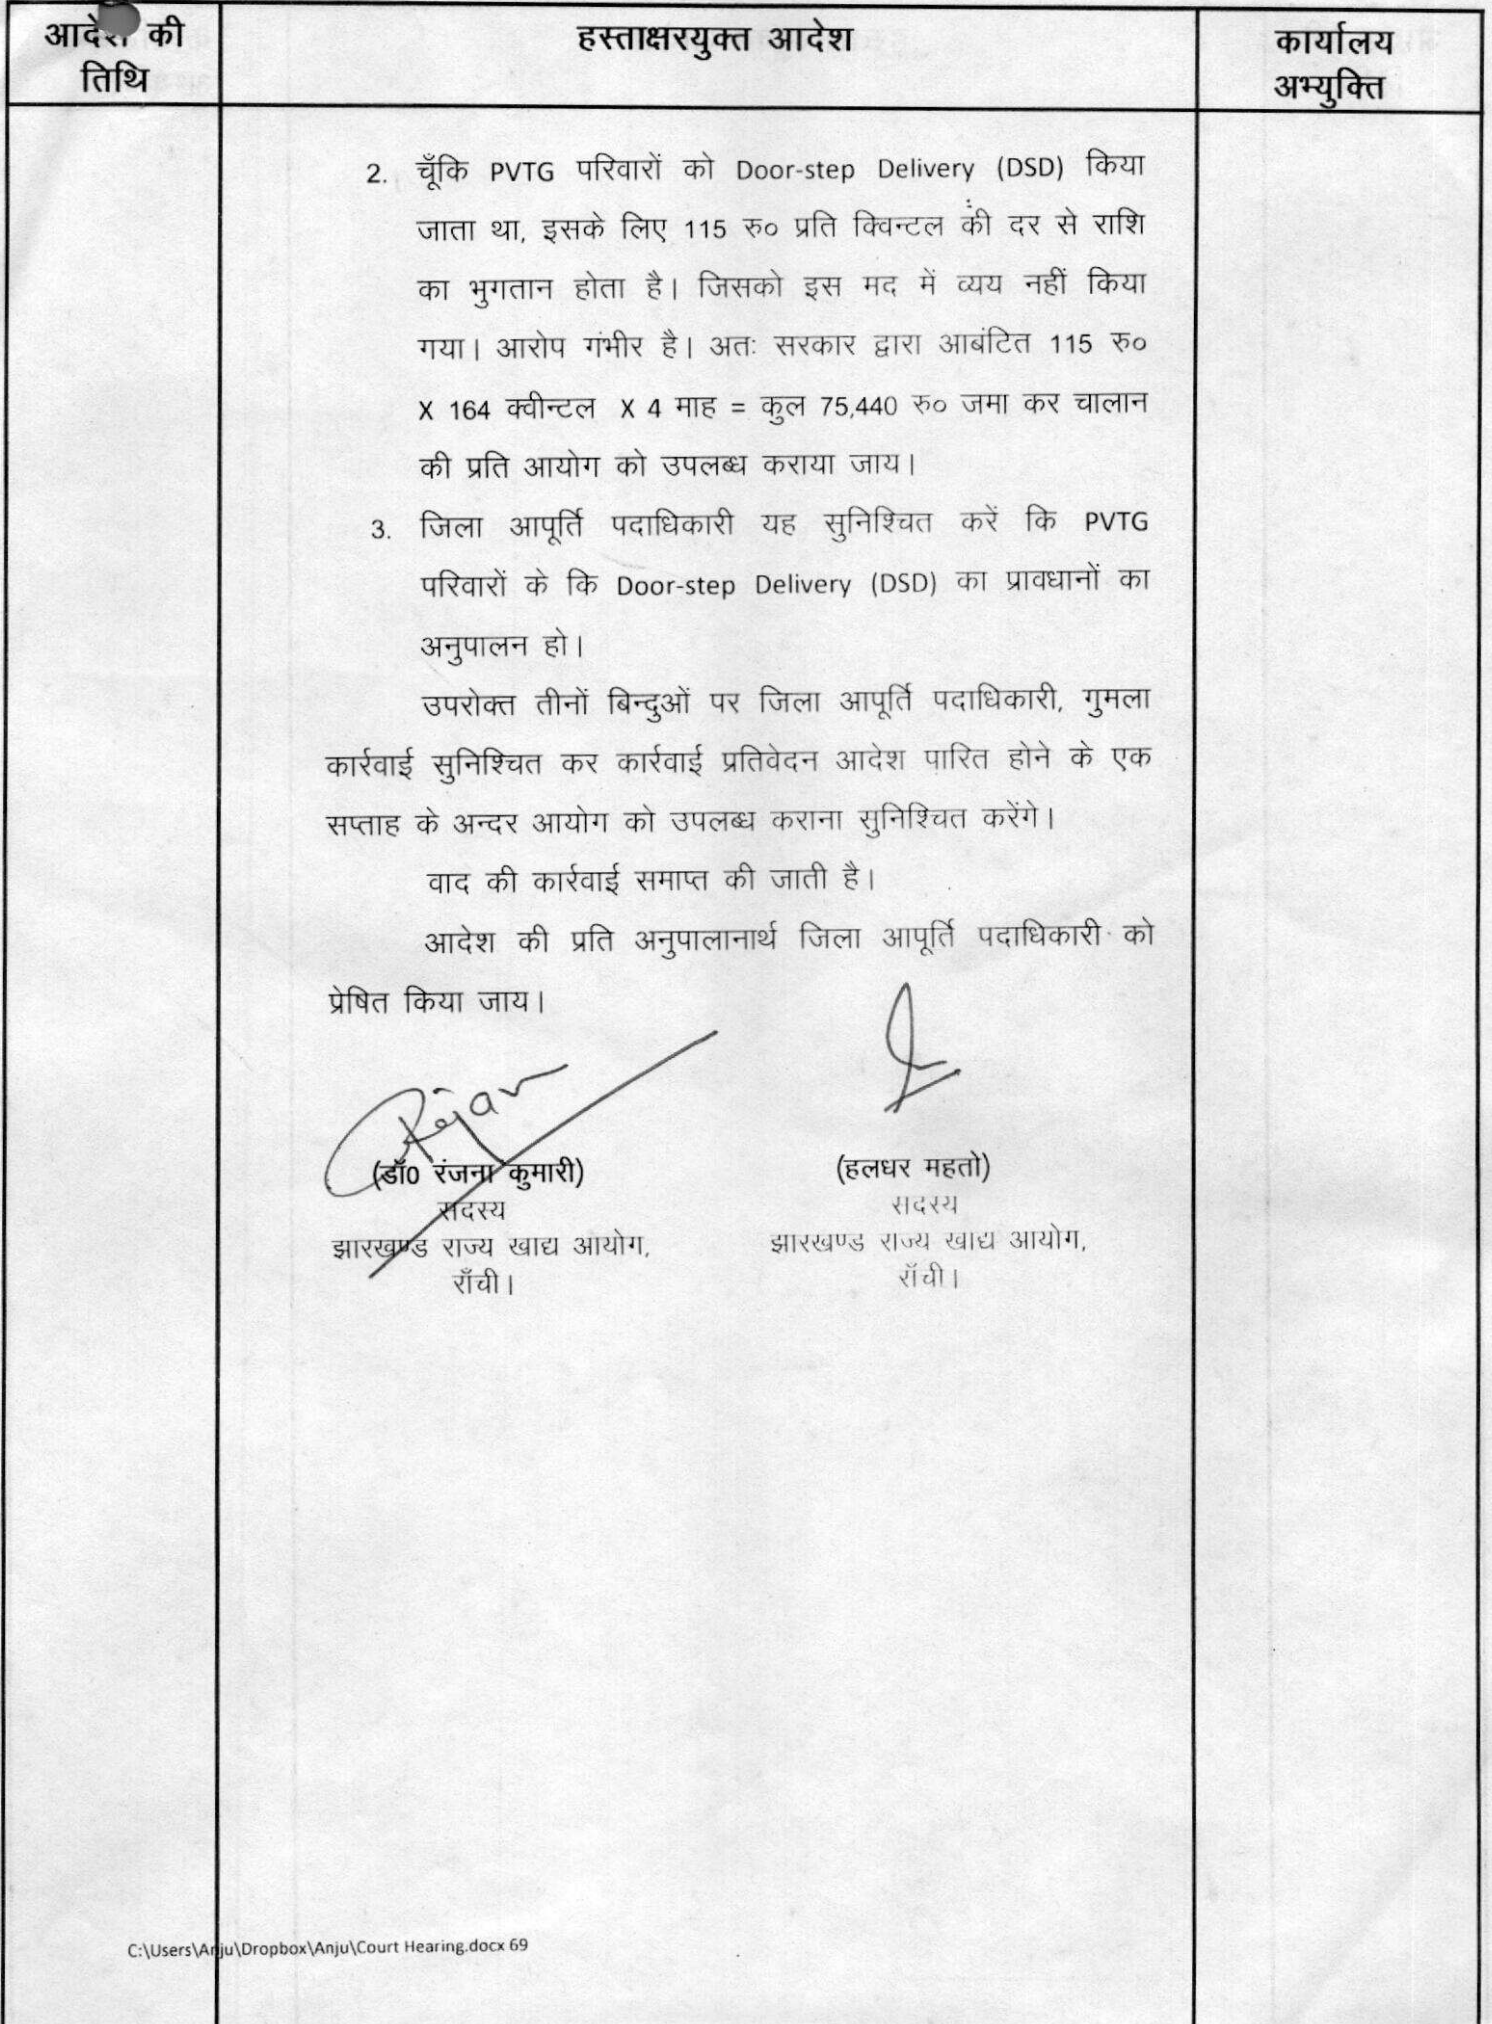 आदेश की
तिथि
हस्ताक्षरयुक्त आदेश
कार्यालय
अभ्युक्ति
2. चूँकि PVTG परिवारों को Door-step Delivery (DSD) किया
जाता था, इसके लिए 115 रु० प्रति क्विन्टल की दर से राशि
का भुगतान होता है। जिसको इस मद में व्यय नहीं किया
गया। आरोप गंभीर है। अतः सरकार द्वारा आबंटित 115 रु०
X 164 क्वीन्टल X 4 माह = कुल 75,440 रु० जमा कर चालान
की प्रति आयोग को उपलब्ध कराया जाय।
3. जिला आपूर्ति पदाधिकारी यह सुनिश्चित करें कि PVTG
परिवारों के कि Door-step Delivery (DSD) का प्रावधानों का
अनुपालन हो।
उपरोक्त तीनों बिन्दुओं पर जिला आपूर्ति पदाधिकारी, गुमला
कार्रवाई सुनिश्चित कर कार्रवाई प्रतिवेदन आदेश पारित होने के एक
सप्ताह के अन्दर आयोग को उपलब्ध कराना सुनिश्चित करेंगे।
वाद की कार्रवाई समाप्त की जाती है।
आदेश की प्रति अनुपालानार्थ जिला आपूर्ति पदाधिकारी को
प्रेषित किया जाय।
(डॉ0 रंजना कुमारी)
सदस्य
झारखण्ड राज्य खाद्य आयोग,
राँची।
(हलधर महतो)
सदस्य
झारखण्ड राज्य खाद्य आयोग,
राँची।
C:\Users\Anju\Dropbox\Anju\Court Hearing.docx 69